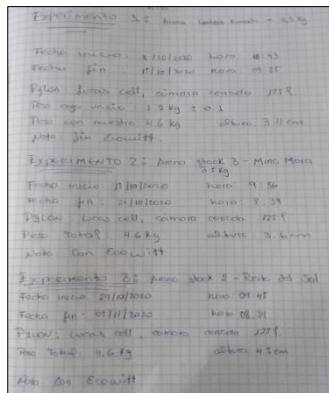 Experimento 1: Arena
Fecha inicio: /10/2020 hora:
Fecha fin 15/10/2020 hora
Pylon Lucas cell, camara cerrada 125 P.
Peso vacio: 1.2 kg ± 0.1
Peso con muestra 4.6 kg altura 3.11 cm
Nota Sin Ecowitt.
EXPERIMENTO 2: Arena stock 3 - Mina
3.5 kg
Fecha inicio: /10/2020 hora: 9:56
Fecha fin: 21/10/2020 hora: 8.39
Pylon: Lucas cell, camara cerrada 125 P
Peso Total: 4.6 kg altura: 3.6 cm
Nota Con Ecowitt
Experimento 3: Arena stock 2 - del Sol
Fecha inicio 27/10/2020 hora 09:45
Fecha fin - 03/11/2020 hora 08:31
Pylon: Lucas cell, camara cerrada 125 P.
Peso Total: 4,6 kg altura 4.5 cm
Nota Con Ecowitt.